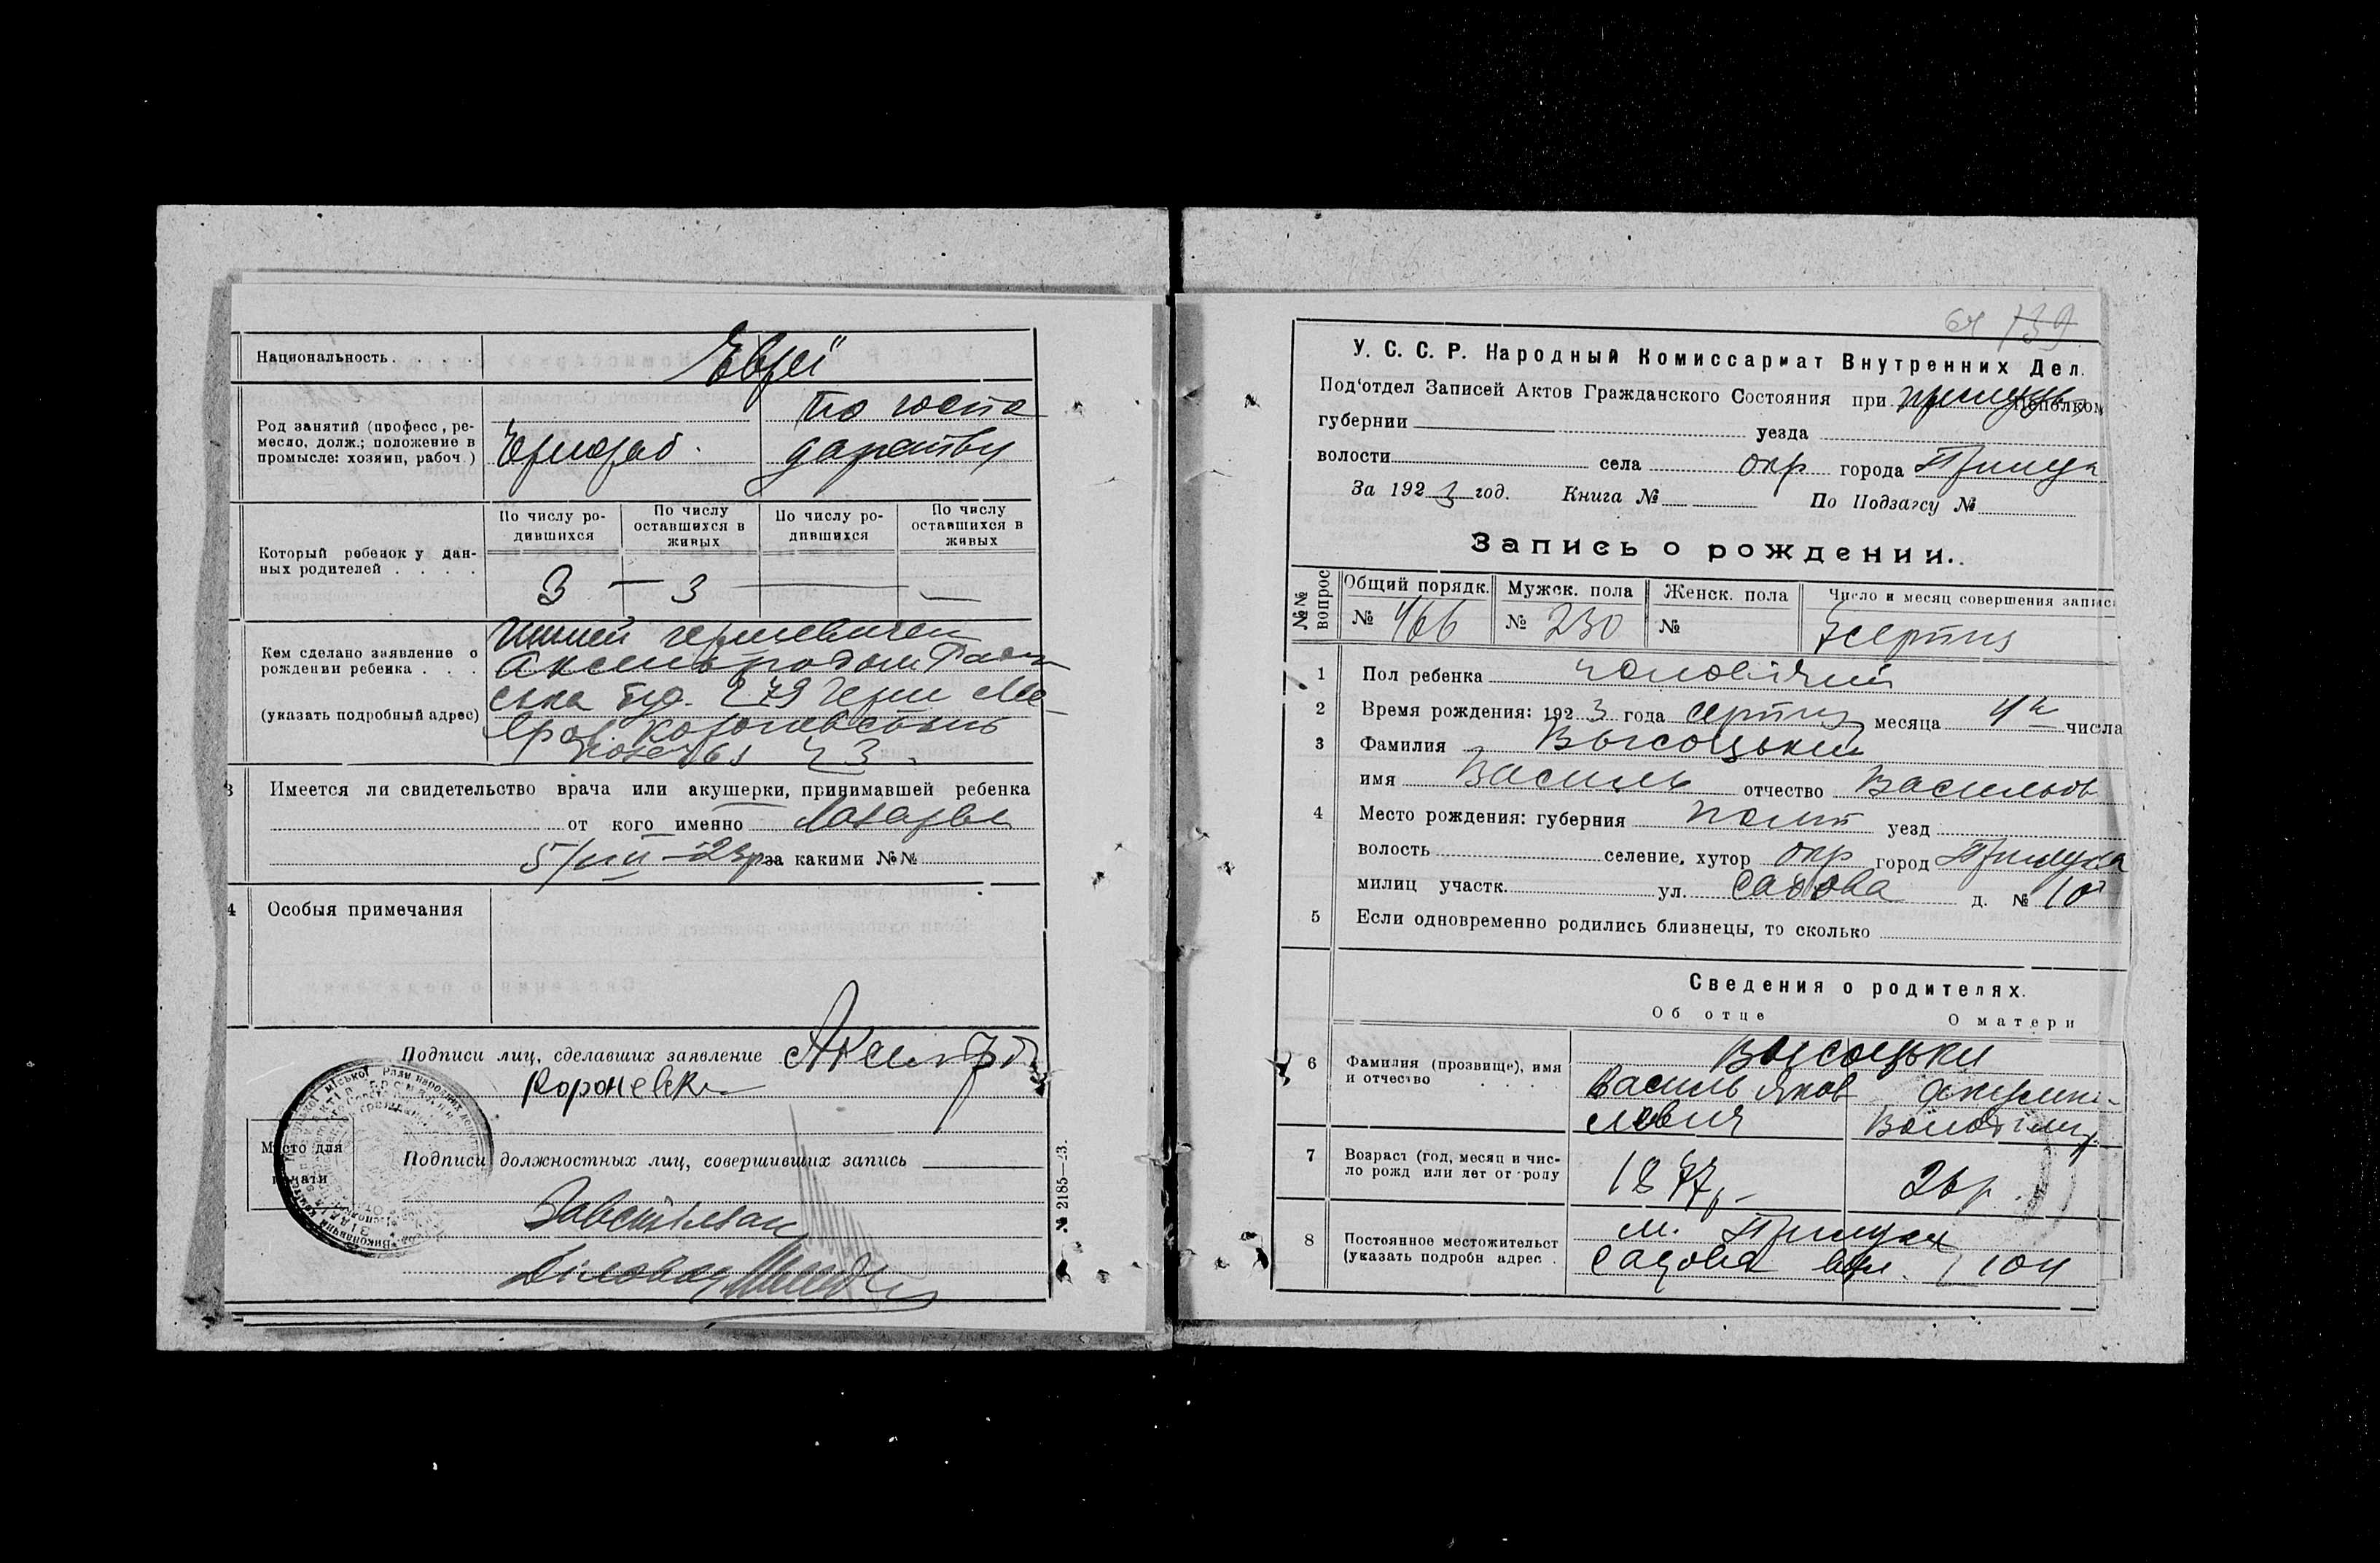 Национальность. . . .
Евреї
Род занятий (професс, ре-
месло, долж.; положение в
промысле: хозяин, рабоч.)
Чернораб.
По госпо
дарству
Который ребенок у дан-
ных родителей . . . .
По числу ро-
дившихся
По числу
оставшихся в
живых
По числу ро-
дившихся
По числу
оставшихся в
живых
3 — 3 — —
Кем сделано заявление о
рождении ребенка . . .
(указать подробный адрес)
Аксельродом
ська буд. 279
3 Имеется ли свидетельство врача или акушерки, принимавшей ребенка
от кого именно
5/VIII-23р за какими №№
4 Особыя примечания
Подписи лиц, сделавших заявление Аксельрод
Место для
печати
Подписи должностных лиц, совершивших запись
Діловод
№ 2185—23.
64 739
У. С. С. Р. Народный Комиссариат Внутренних Дел.
Под'отдел Записей Актов Гражданского Состояния при Исполком
губернии уезда
волости села окр города Прилука
За 1923 год. Книга № По Подзагсу №
Запись о рождении.
№№ вопрос
Общий порядк.
№ 466
Мужск. пола
№ 230
Женск. пола
№
Число и месяц совершения запис
7 серпня
1 Пол ребенка чоловічий
2 Время рождения: 1923 года серпня месяца 4го числа
3 Фамилия Высоцький
имя Василь отчество Васильов
4 Место рождения: губерния Полт уезд
волость селение, хутор окр город Прилука
милиц участк. ул. Садова д. № 10
5 Если одновременно родились близнецы, то сколько
Сведения о родителях.
Об отце О матери
6 Фамилия (прозвище), имя
и отчество . . . .
Высоцьки
Василь Яков
левич
Володімир
7 Возраст (год, месяц и чис-
ло рожд или лет от роду
1877р.
26р.
8 Постоянное местожительст
(указать подробн адрес .
м. Прилуки
Садова вул. 104